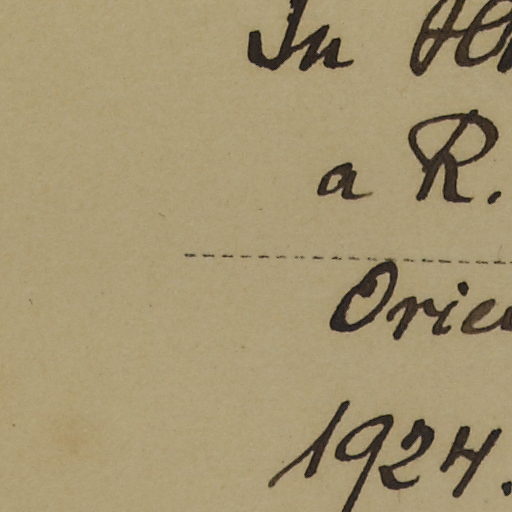 In
a R.
Orie
1924.